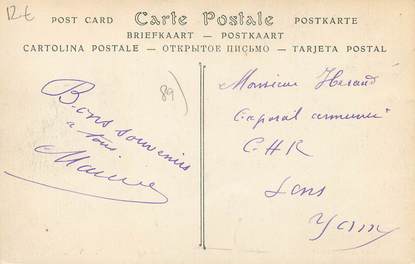 12€
POST CARD Carte Postale POSTKARTE
BRIEFKAART — POSTKAART
CARTOLINA POSTALE — ОТКРЫТОЕ ПИСЬМО — TARJETA POSTAL
89
Bons souvenirs
à tous
Monsieur
Caporal
C.H.R
Sens
Yonne